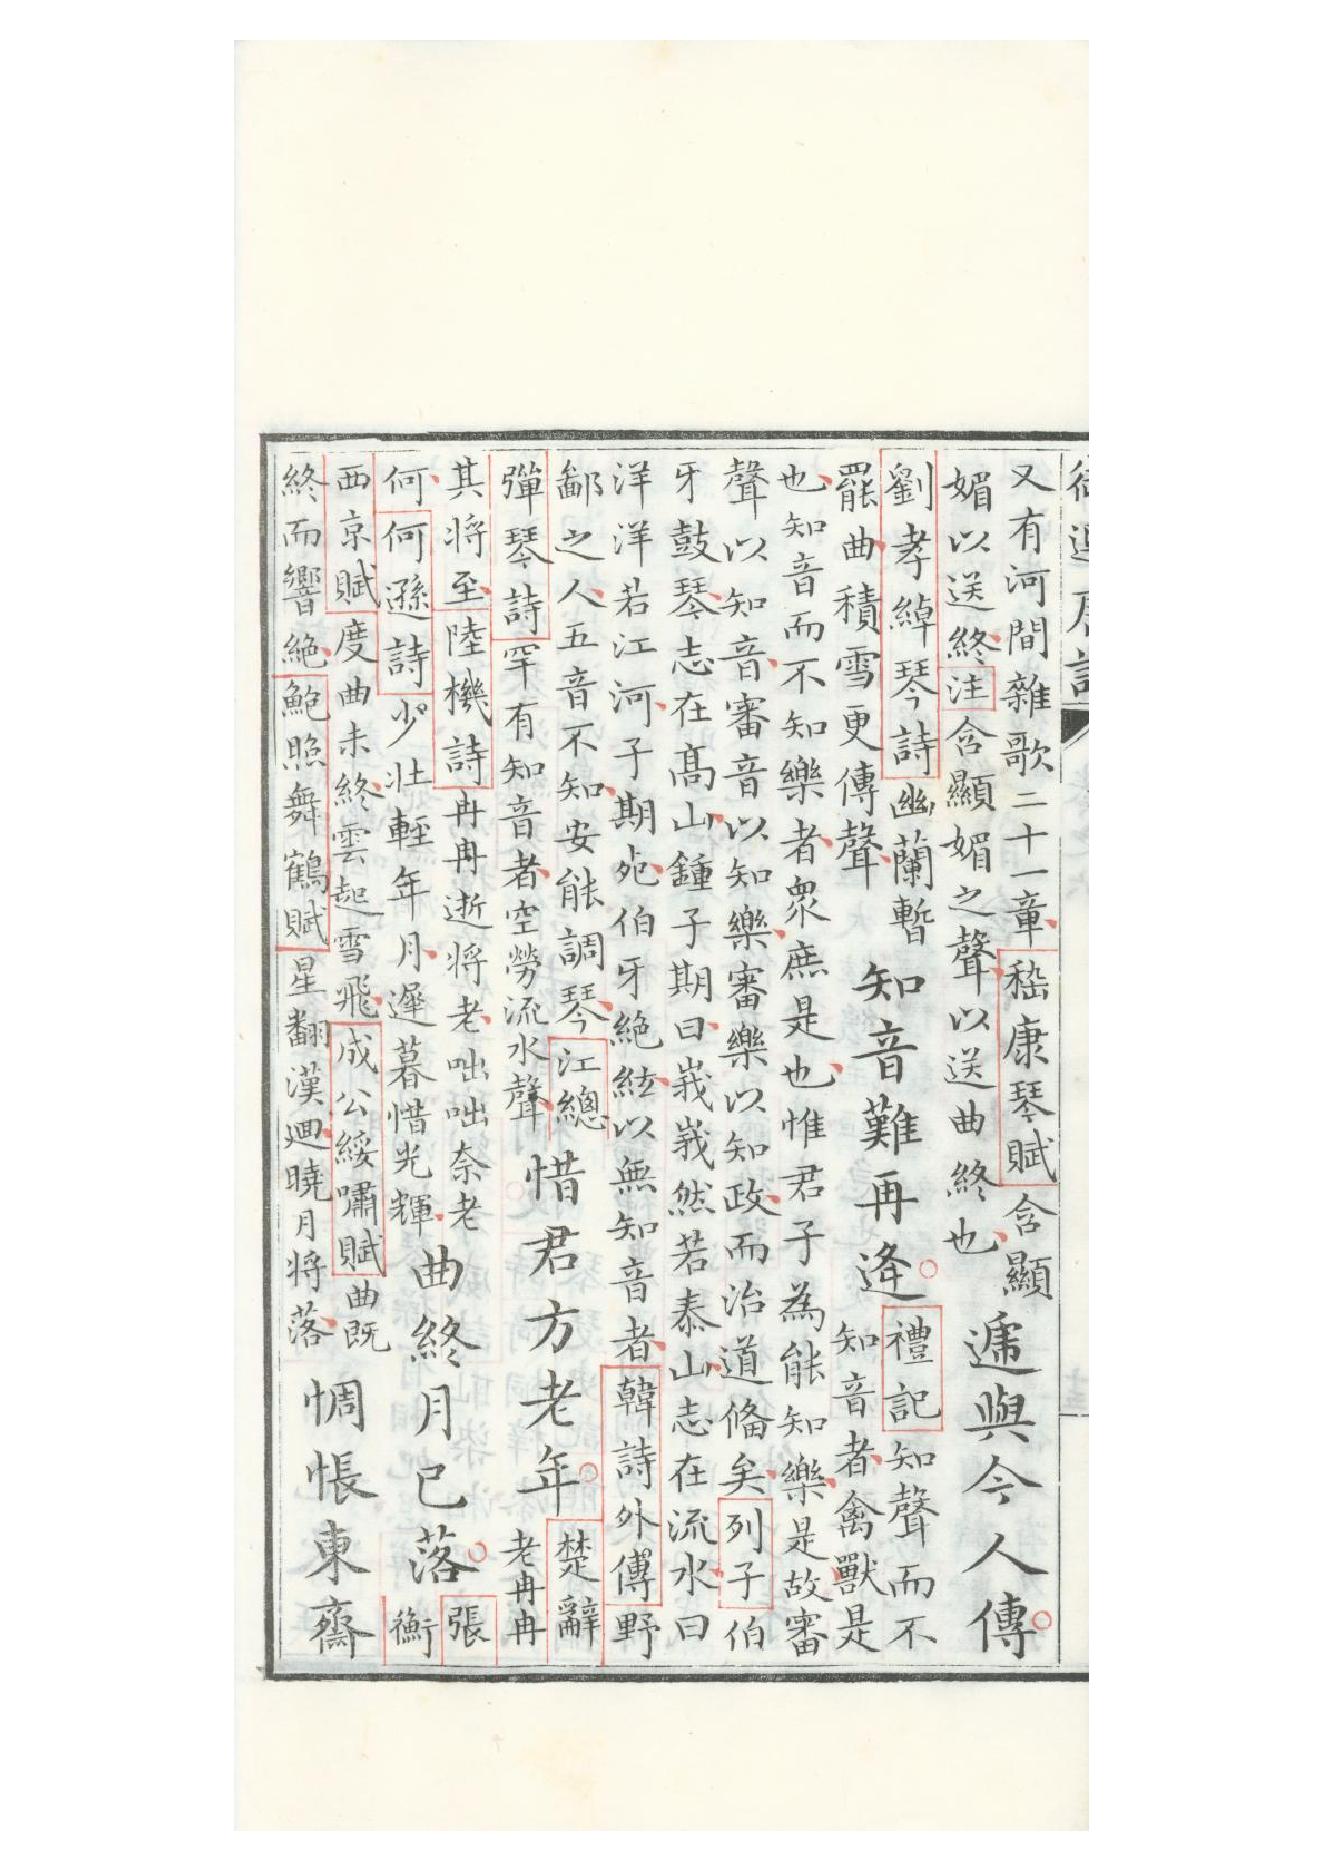 又有河間雜歌二十一章嵇康琴賦含顯
媚以送終注含顯媚之聲以送曲終也
遞與今人傳
劉孝綽琴詩幽蘭暫
罷曲積雪更傳聲
知音難再逢
禮記知聲而不
知音者禽獸是
也知音而不知樂者衆庶是也惟君子為能知樂是故審
聲以知音審音以知樂審樂以知政而治道俻矣列子伯
牙鼓琴志在髙山鍾子期曰峩峩然若泰山志在流水曰
洋洋若江河子期死伯牙絕絃以無知音者韓詩外傳野
鄙之人五音不知安能調琴江總
彈琴詩罕有知音者空勞流水聲
惜君方老年
楚辭
老冉冉
其將至陸機詩冉冉逝將老咄咄奈老
何何遜詩少壯輕年月遲暮惜光輝
曲終月已落
張
衡
西京賦度曲未終雲起雪飛成公綏嘯賦曲既
終而響絕鮑照舞鶴賦星翻漢迴曉月將落
惆悵東齋